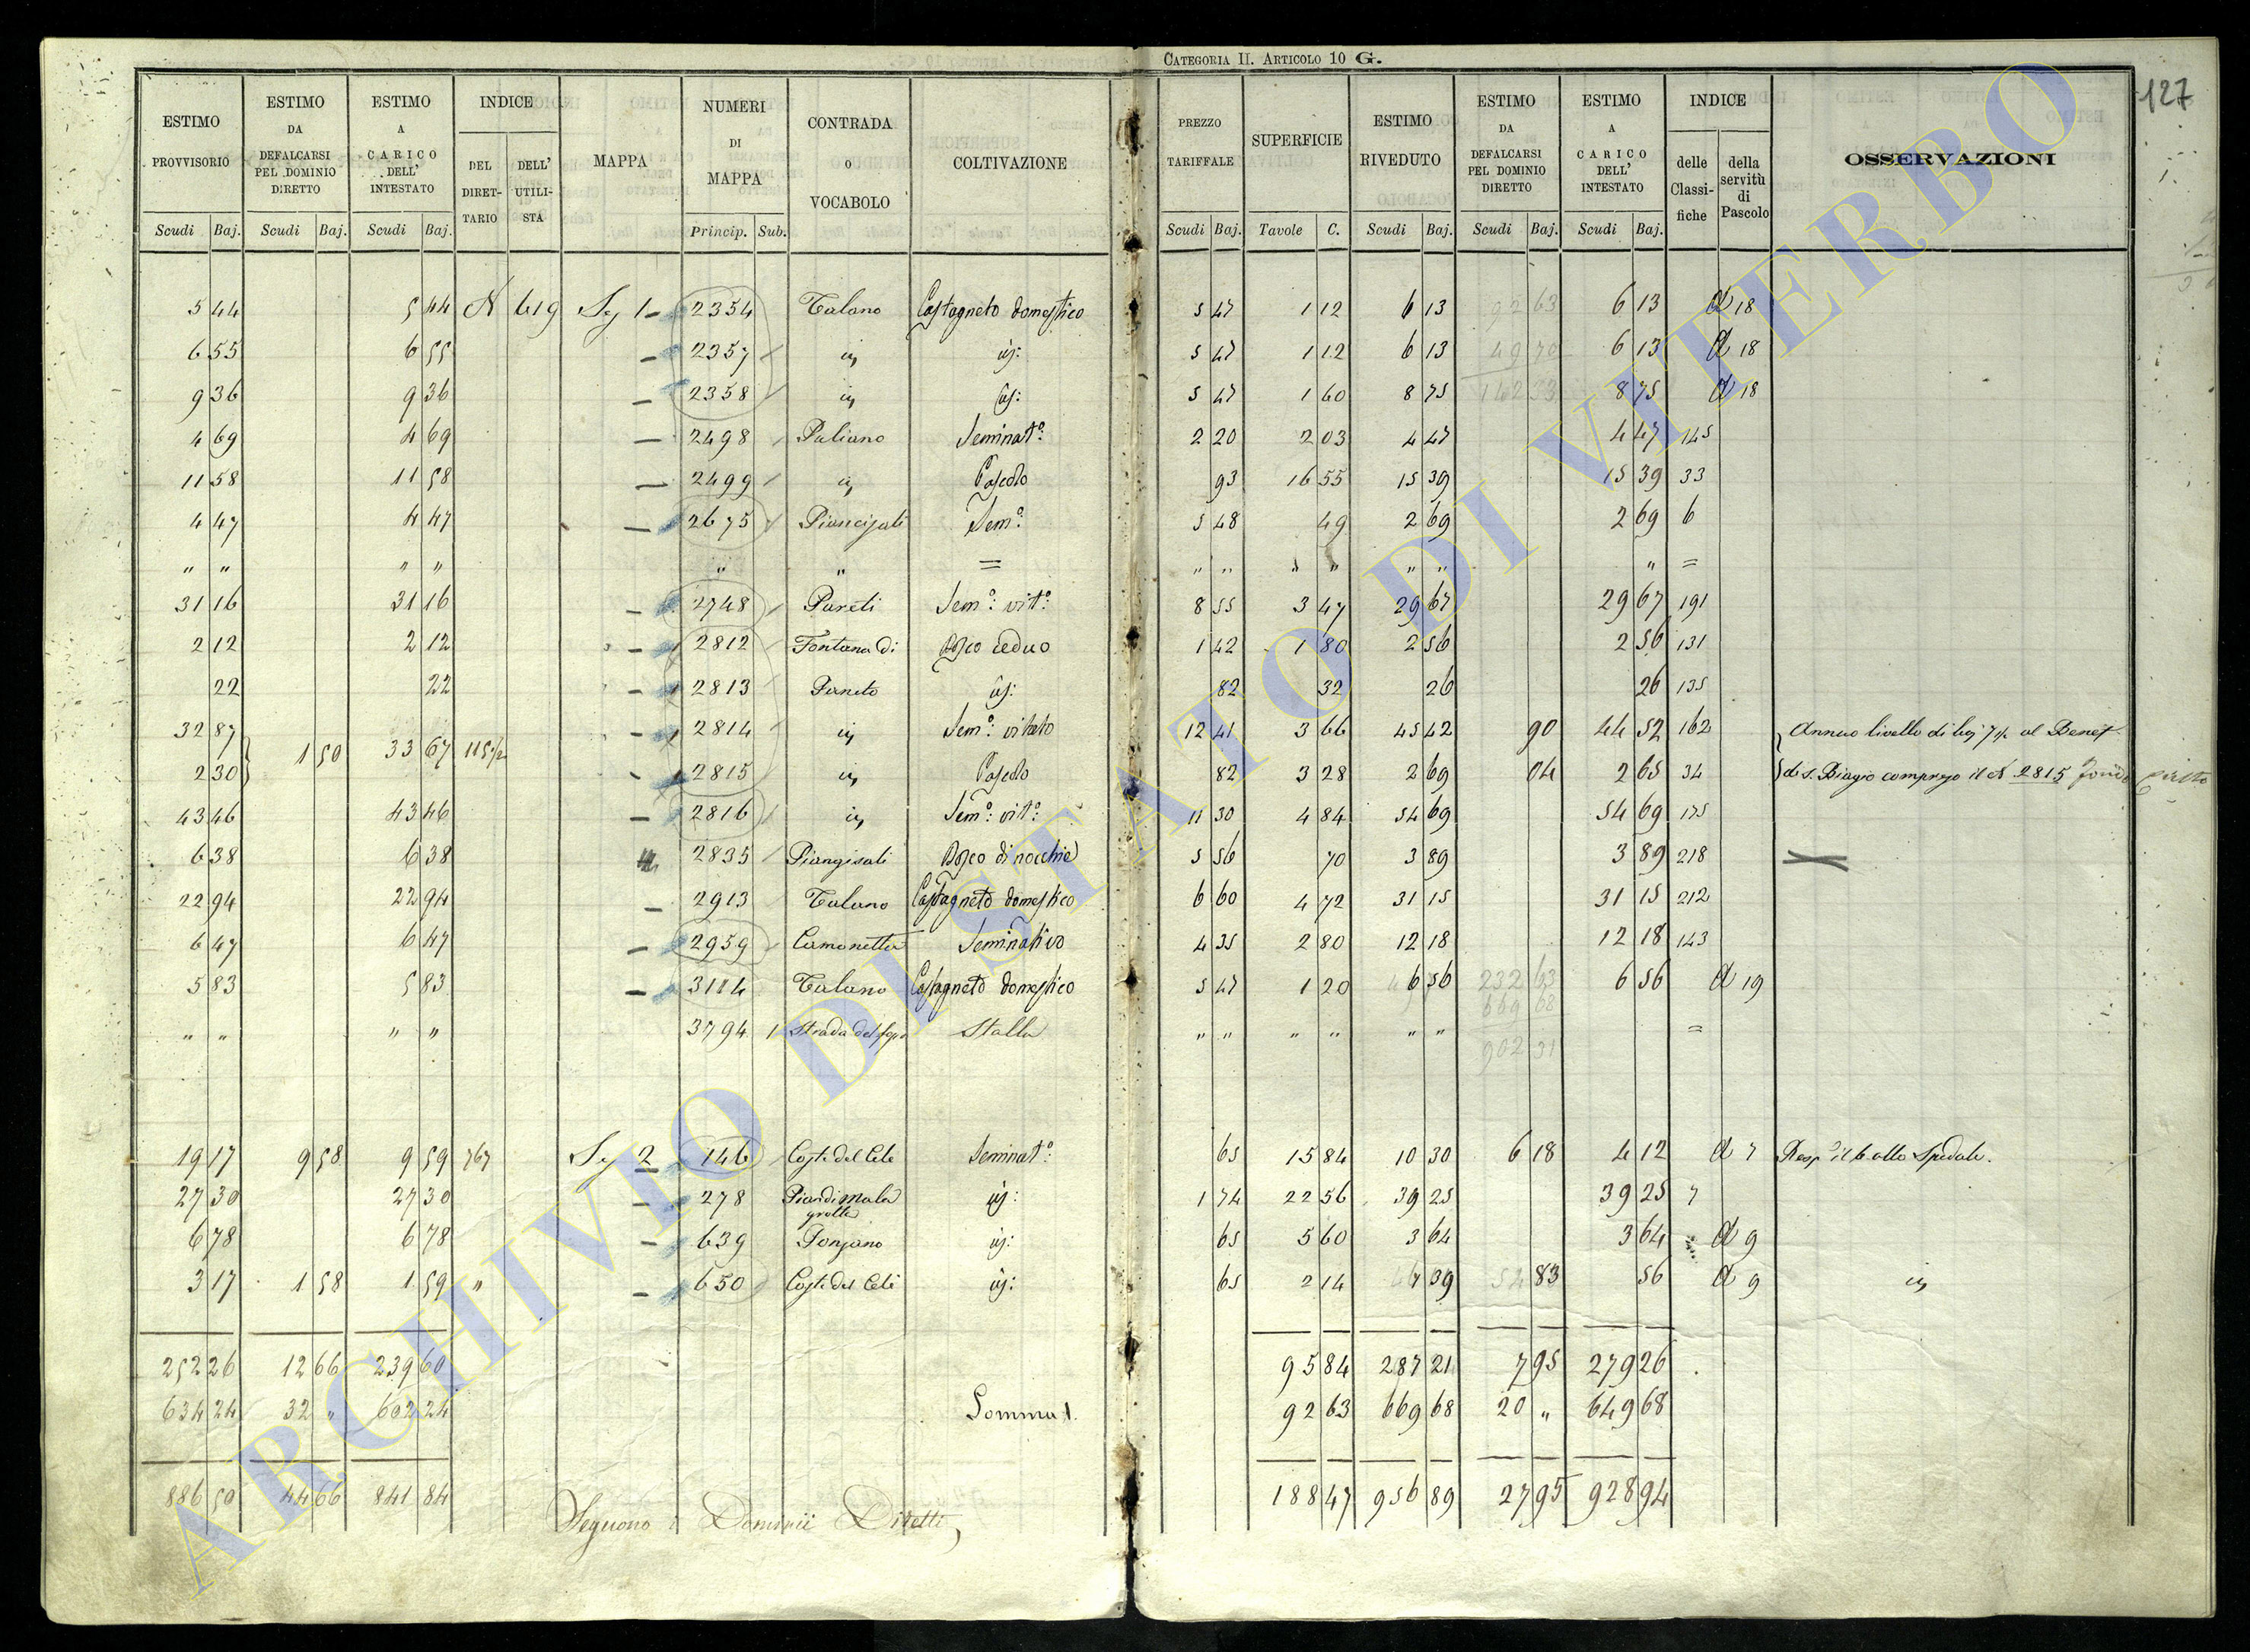 CATEGORIA II. ARTICOLO 10 G.
127
ESTIMO PROVVISORIO Scudi Baj. ESTIMO DA DEFALCARSI PEL DOMINIO DIRETTO Scudi Baj. ESTIMO A CARICO DELL' INTESTATO Scudi Baj. INDICE DEL DIRETTARIO DELL' UTILISTA MAPPA NUMERI DI MAPPA Princip. Sub. CONTRADA o VOCABOLO COLTIVAZIONE PREZZO TARIFFALE Scudi Baj. SUPERFICIE Tavole C. ESTIMO RIVEDUTO Scudi Baj. ESTIMO DA DEFALCARSI PEL DOMINIO DIRETTO Scudi Baj. ESTIMO A CARICO DELL' INTESTATO Scudi Baj. INDICE delle Classifiche della servitù di Pascolo OSSERVAZIONI
5 44 5 44 N 619 Sez 1 2354 Talano Castagneto domestico 5 47 1 12 6 13 92 63 6 13 A 18
6 55 6 55 2357 5 47 1 12 6 13 49 70 6 13 A 18
9 36 9 36 2358 5 47 1 60 8 75 142 33 8 75 A 18
4 69 4 69 2498 Paliano Seminat.o 2 20 2 03 4 47 4 47 145
11 58 11 58 2499 Pascolo 93 16 55 15 39 15 39 33
4 47 4 47 2675 Piancisali Sem.o 5 48 49 2 69 2 69 6
" " " " " " = " " " " " " " =
31 16 31 16 2748 Pareti Sem.o vit.o 8 55 3 47 29 67 29 67 191
2 12 2 12 2812 Fontana di Bosco ceduo 1 42 1 80 2 56 2 56 131
22 22 2813 Paneto 82 32 26 26 135
32 87 2814 Sem.o vitato 12 41 3 66 45 42 90 44 52 162 Annuo livello di baj 7½ al Benef
1 50 33 67 115½
2 30 2815 Pascolo 82 3 28 2 69 04 2 65 34 di S. Biagio compreso il N 2815
43 46 43 46 2816 Sem.o vit.o 11 30 4 84 54 69 54 69 175
6 38 6 38 2835 Piangisali Bosco di nocchie 5 56 70 3 89 3 89 218
22 94 22 94 2913 Talano Castagneto domestico 6 60 4 72 31 15 31 15 212
6 47 6 47 2959 Camonetta Seminativo 4 35 2 80 12 18 12 18 143
5 83 5 83 3114 Talano Castagneto domestico 5 47 1 20 6 56 232 63 6 56 A 19
669 68
" " " " 3794 1 Strada del Stalla " " " " " " =
902 31
19 17 9 58 9 59 767 Sez 2 146 Coste del Cele Seminat.o 65 15 84 10 30 6 18 4 12 A 7 Spedale.
27 30 27 30 278 Pian di Mala grotta 1 74 22 56 39 25 39 25 7
6 78 6 78 639 Fonjano 65 5 60 3 64 3 64 A 9
3 17 1 58 1 59 " 650 Coste del Cele 65 2 14 39 83 56 A 9
252 26 12 66 239 60 95 84 287 21 7 95 279 26
634 24 32 " 602 24 Somma 1. 92 63 669 68 20 " 649 68
886 50 44 66 841 84 188 47 956 89 27 95 928 94
Seguono i Dominii Diretti
ARCHIVIO DI STATO DI VITERBO